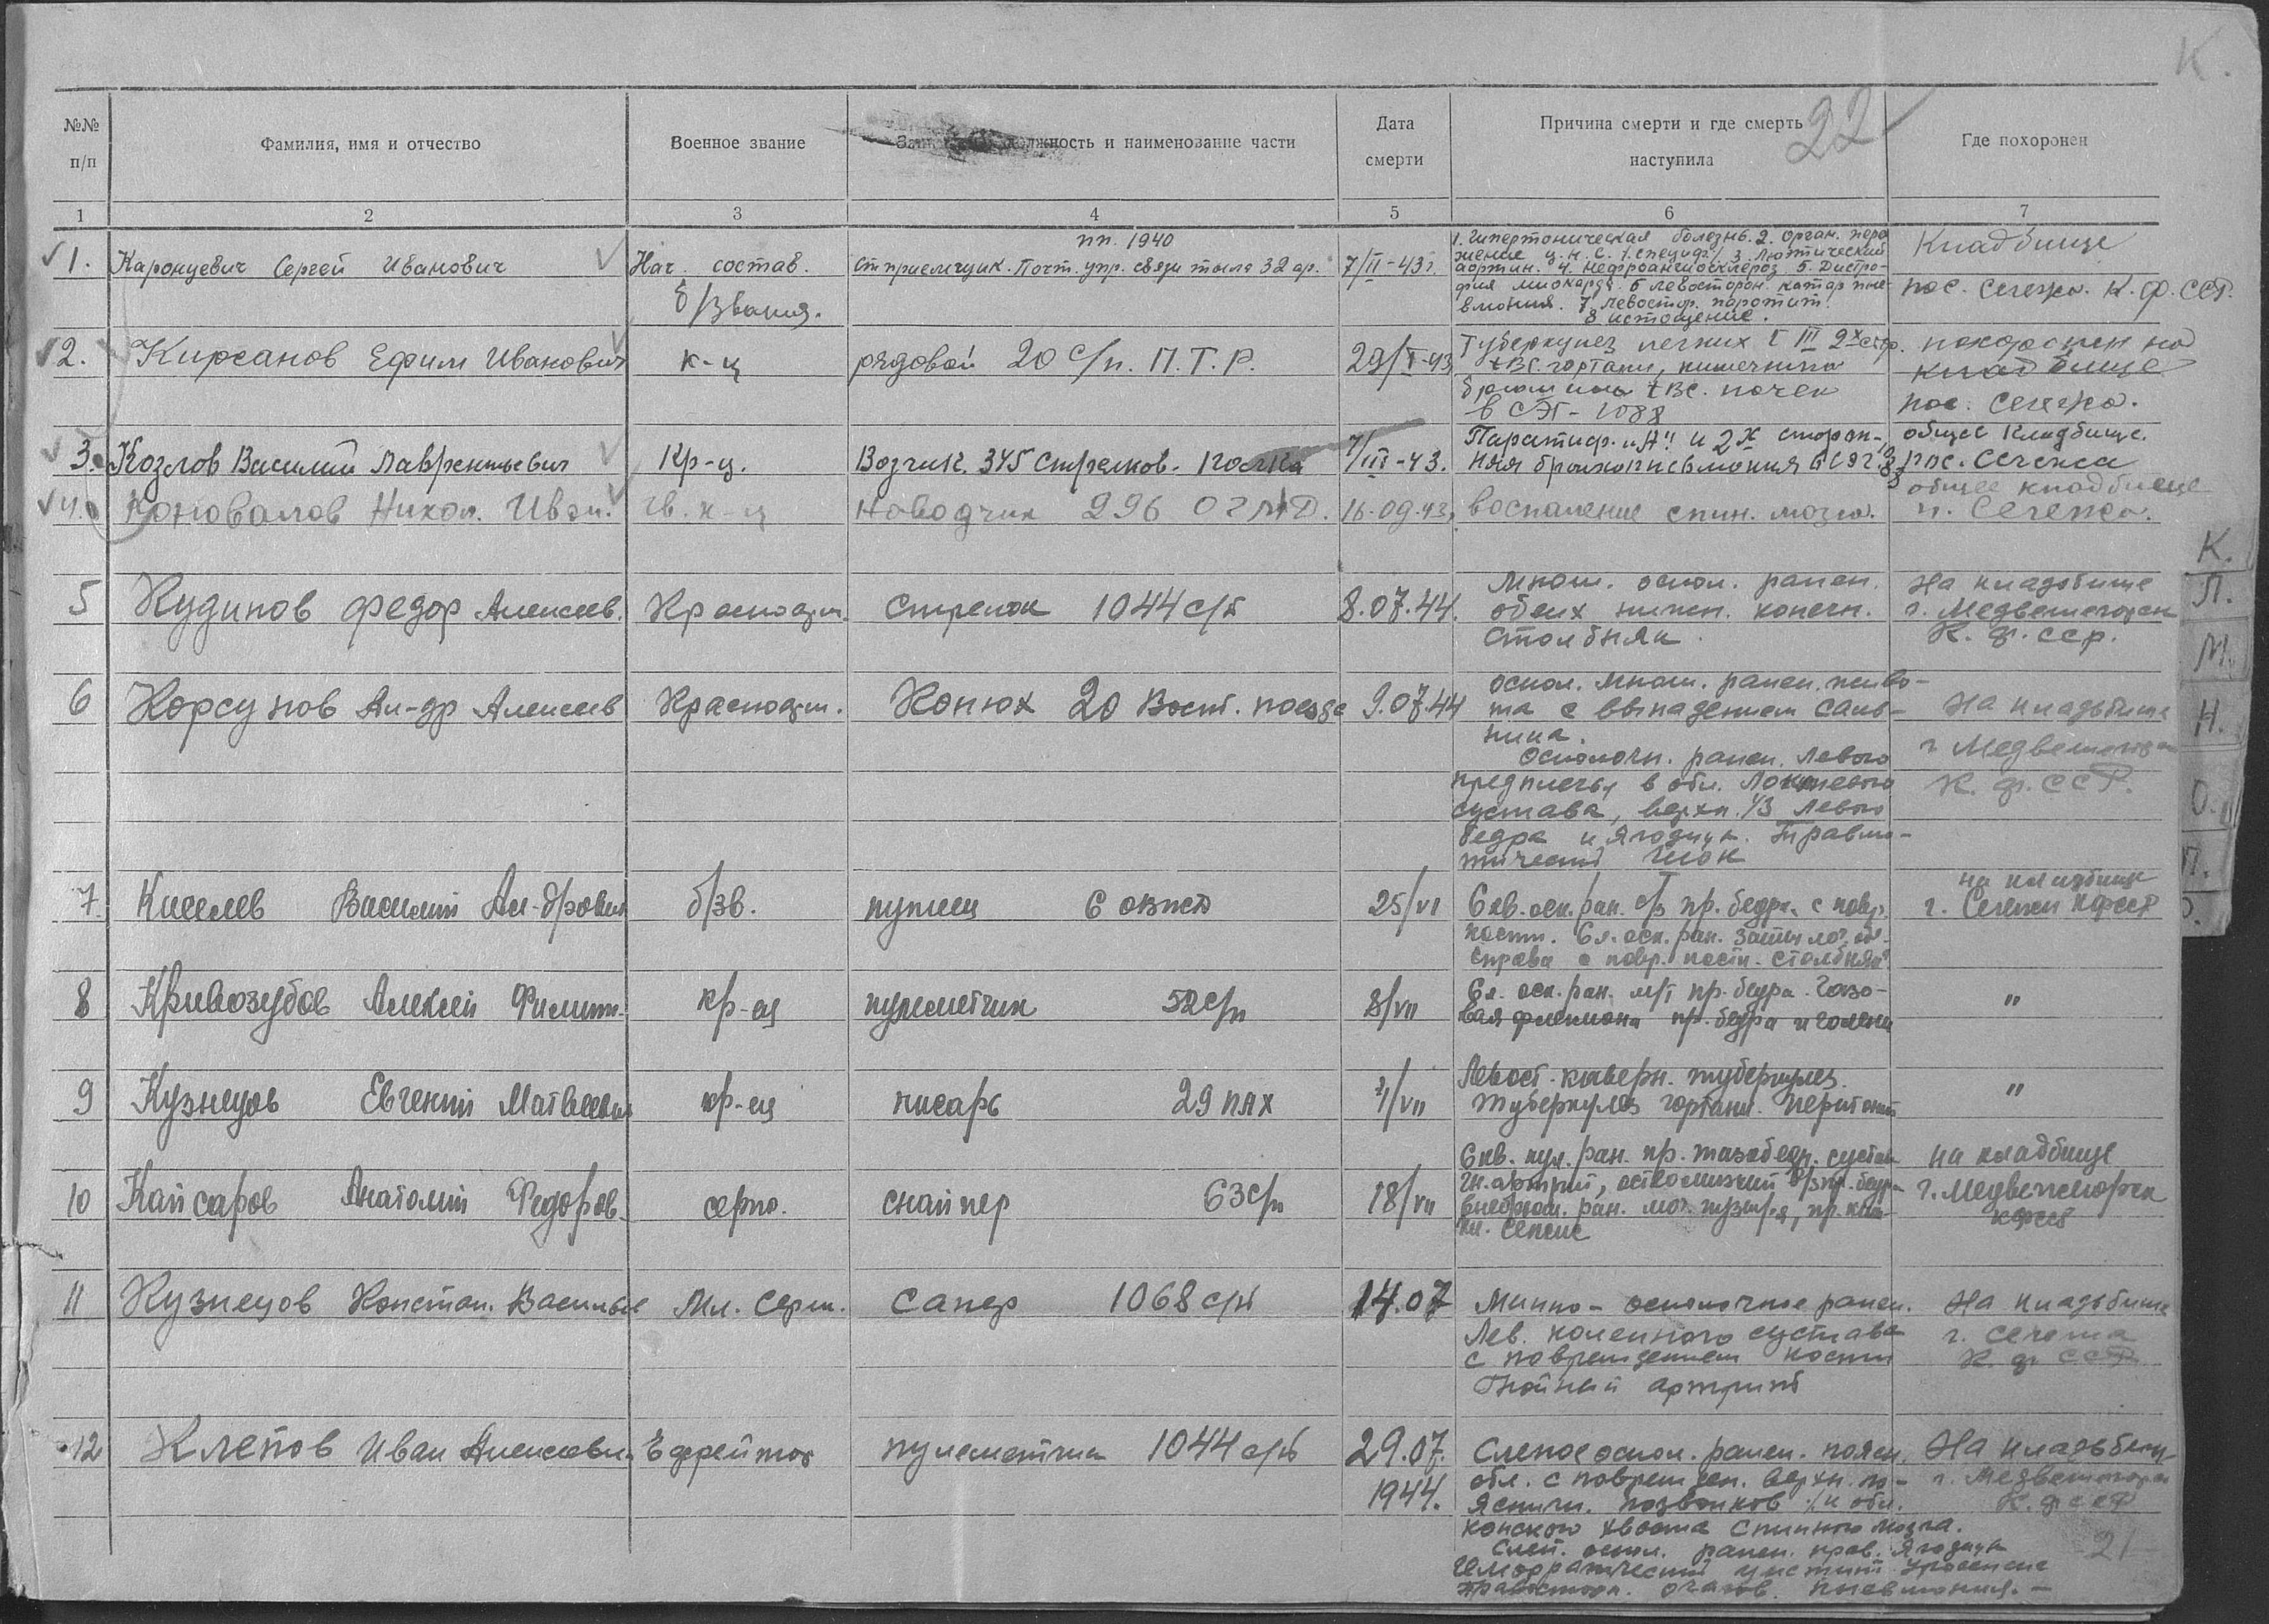 К.
22
№№ п/п
Фамилия, имя и отчество
Военное звание
должность и наименование части
Дата смерти
Причина смерти и где смерть наступила
Где похоронен
1 2 3 4 5 6 7
1. Каронцевич Сергей Иванович
Нач. состав. б/звания.
пп. 1940
ст приемщик. Почт. упр. связи тыла 32 ар.
7/II-43г.
1. Гипертоническая болезнь. 2. Орган. пора
жение ц.н.с. /специф./ 3. Люэтический
аортит. 4. Нефроангиосклероз 5. Дистро-
фия миокарда. 6 левосторон. катар пне-
вмония. 7. Левостор. паротит.
8 истощение.
Кладбище
пос. Сегежа. К.ф.ССР.
2. Кирсанов Ефим Иванович
к-ц
рядовой 20 с/п. П.Т.Р.
29/I-43
Туберкулез легких III 2х стор.
tвс. гортани, кишечника
tвс. почек
в СЭГ-1088
похоронен на
кладбище
пос. Сегежа.
3. Козлов Василий Лаврентьевич
Кр-ц.
Возчик. 345 стрелков. полка
7/III-43.
Паратиф. "А" и 2х сторон-
няя бронхопневмония
общее кладбище.
пос. Сегежа
4. Коновалов Никол. Иван.
Гв. к-ц
Наводчик 296 ОГМД.
16.09.43.
воспаление спин. мозга.
общее кладбище
п. Сегежа.
5 Кудинов Федор Алексеев.
Красноарм.
Стрелок 1044 с/п
8.07.44.
Множ. оскол. ранен.
обеих нижн. конечн.
Столбняк.
На кладбище
г. Медвежегорск
К.ф.ССР.
6 Корсунов Ал-др Алексеев
Красноарм.
Конюх 20 Вост. поезда
9.07.44
оскол. множ. ранен. живо-
та с выпадением саль-
ника.
Осколочн. ранен. левого
предплечья в обл. локтевого
сустава, верхн. 1/3 левого
бедра и ягодиц. Травма-
тический шок
На кладбище
г. Медвежегорск
К.ф.ССР.
7. Киселев Василий Ал-дрович
б/зв.
6
25/VI
Скв. оск. ран. с/3 пр. бедра с повр.
кости. Сл. оск. ран. затылоч. обл.
справа с повр. кости. Столбняк
на кладбище
г. Сегежи КФССР
8 Кривозубов Алексей Филипп.
кр-ец
пулеметчик 52 с/п
8/VII
Сл. оск. ран. пр. бедра. Газо-
вая флегмона пр. бедра и голени
"
9 Кузнецов Евгений Матвеевич
кр-ец
писарь 29 ПАХ
4/VII
Левост. каверн. туберкулез.
Туберкулез гортани. Перитонит
"
10 Кайсаров Анатолий Федоров.
серж.
снайпер 63 с/п
18/VII
Скв. пул. ран. пр. тазобедр. сустав
Гн. артрит, остеомиэлит в/3 пр. бедра
внебрюш. ран. моч. пузыря, пр.
Сепсис
на кладбище
г. Медвежегорск
КФССР
11 Кузнецов Констан. Васильев
Мл. Серж.
Сапер 1068 с/п
14.07
Минно-осколочное ранен.
Лев. коленного сустава
с повреждением кости
Гнойный артрит
На кладбище
г. Сегежа
К.ф.ССР
12 Клепов Иван Алексеевич
Ефрейтор
пулеметчик 1044 с/п
29.07.
1944.
Слепое оскол. ранен. поясн.
обл. с поврежден. верхн. по-
ясничн. позвонков и обл.
конского хвоста спинного мозга.
Слеп. оскол. ранен. прав. ягодицы
Геморрагический цистит Уросепсис
Правосторон. очагов. пневмония. —
На кладбище
г. Медвежегорск
К.ф.ССР
21
К.
Л.
М.
Н.
О.
П.
Р.